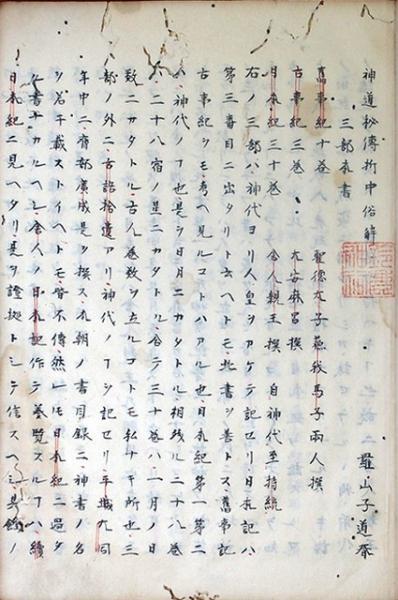 神道秘傳折中俗解 羅山子道春
三部本書
舊事紀十巻 聖徳太子蘇我馬子兩人撰
古事紀三巻 太安麻呂撰
日本紀三十巻 舎人親王撰 自神代至持統
右ノ三部ハ神代ヨリ人皇ヲアケテ記セリ日本記ハ
第三番目ニ出タリト云ヘトモ此書ヲ善トス舊事記
古事紀ヲモ考ヘ見ルコトハアル也日本紀第一第二
ハ神代ノヿ也是ヲ日月ニカタトル相残ル二十八巻
ハ二十八宿ノ星ニカタトル合テ三十巻ハ一月ノ日
数ニカタトル古人巻数ヲ立ルコトモ私ナキ所也三
部ノ外ニ古語拾遺アリ神代ノヿヲ記セリ平城大同
年中ニ齋部廣成是ヲ撰ス本朝ノ書目録ニ神書ノ名
ヲ若干載ストイヘトモ皆不傳然レハ日本紀ニ過タ
ル書ナカルヘシ舎人ノ日本記作テ奏覧スルヿハ續
日本紀ニ見ヘタリ是ヲ證拠トシテ信スヘシ其餘ノ